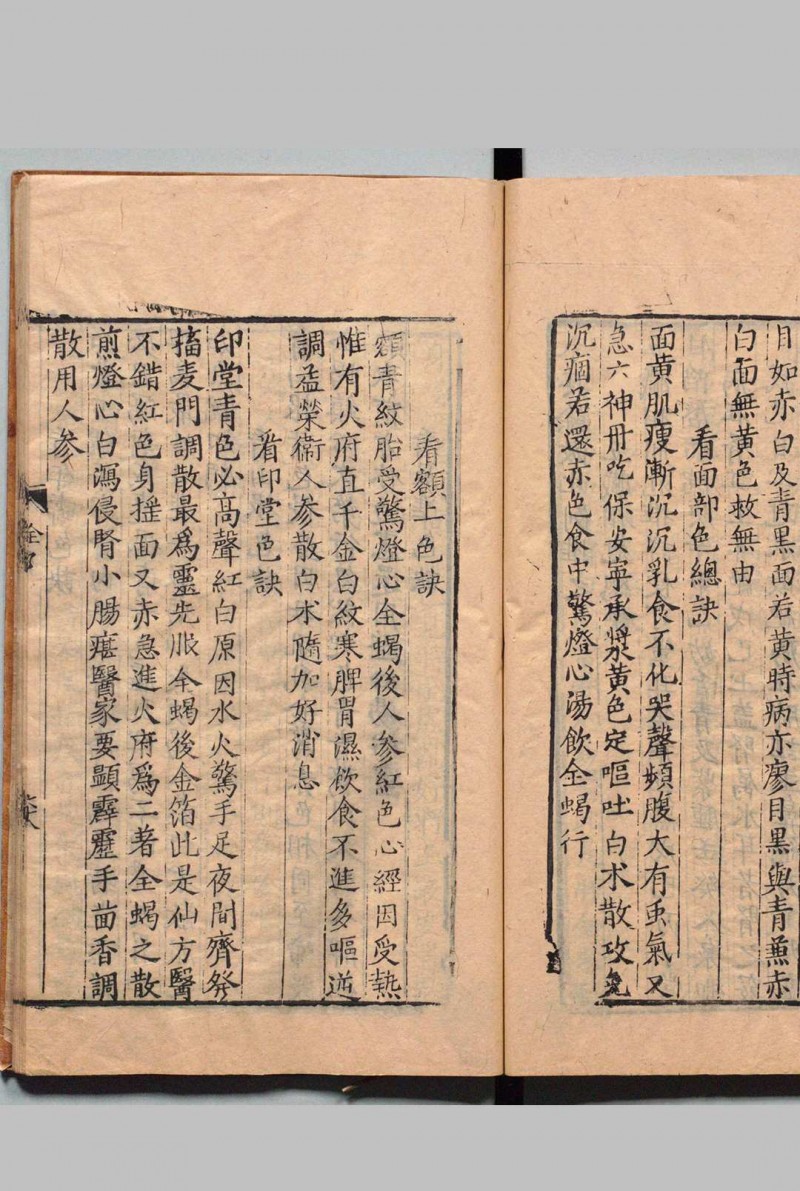 目如赤白及青黑面若黄時病亦瘳目黑與青兼赤
白面無黄色救無由
看面部色總訣
面黄肌瘦漸沉沉乳食不化哭聲頻腹大有虫氣又
急六神丹吃保安寧承漿黄色定嘔吐白术散攻氣
沉痼若還赤色食中驚燈心湯飲全蝎行
看額上色訣
額青紋胎受驚燈心全蝎後人參紅色心經因受熱
惟有火府直千金白紋寒脾胃濕飲食不進多嘔逆
調益榮衛人參散白术隨加好消息
看印堂色訣
印堂青色必高聲紅白原因水火驚手足夜間齊發
搐麦門調散最爲靈先服全蝎後金箔此是仙方醫
不錯紅色身摇面又赤急進火府爲二著全蝎之散
煎燈心白瀉侵腎小腸癨醫家要顯霹靂手茴香調
散用人參